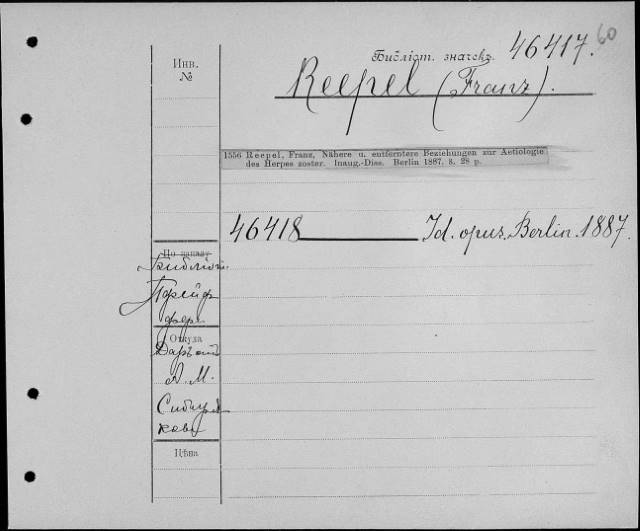 60
Инв.
№
Библіот. значекъ 46417.
Reepel (Franz).
1556 Reepel, Franz, Nähere u. entferntere Beziehungen zur Aetiologie
des Herpes zoster. Inaug.-Diss. Berlin 1887. 8. 28 p.
46418 Id. opus. Berlin. 1887.
По каналу
Библіот.
Пфейф
фер.
Откуда
Даръ отъ
А. М.
Цѣна